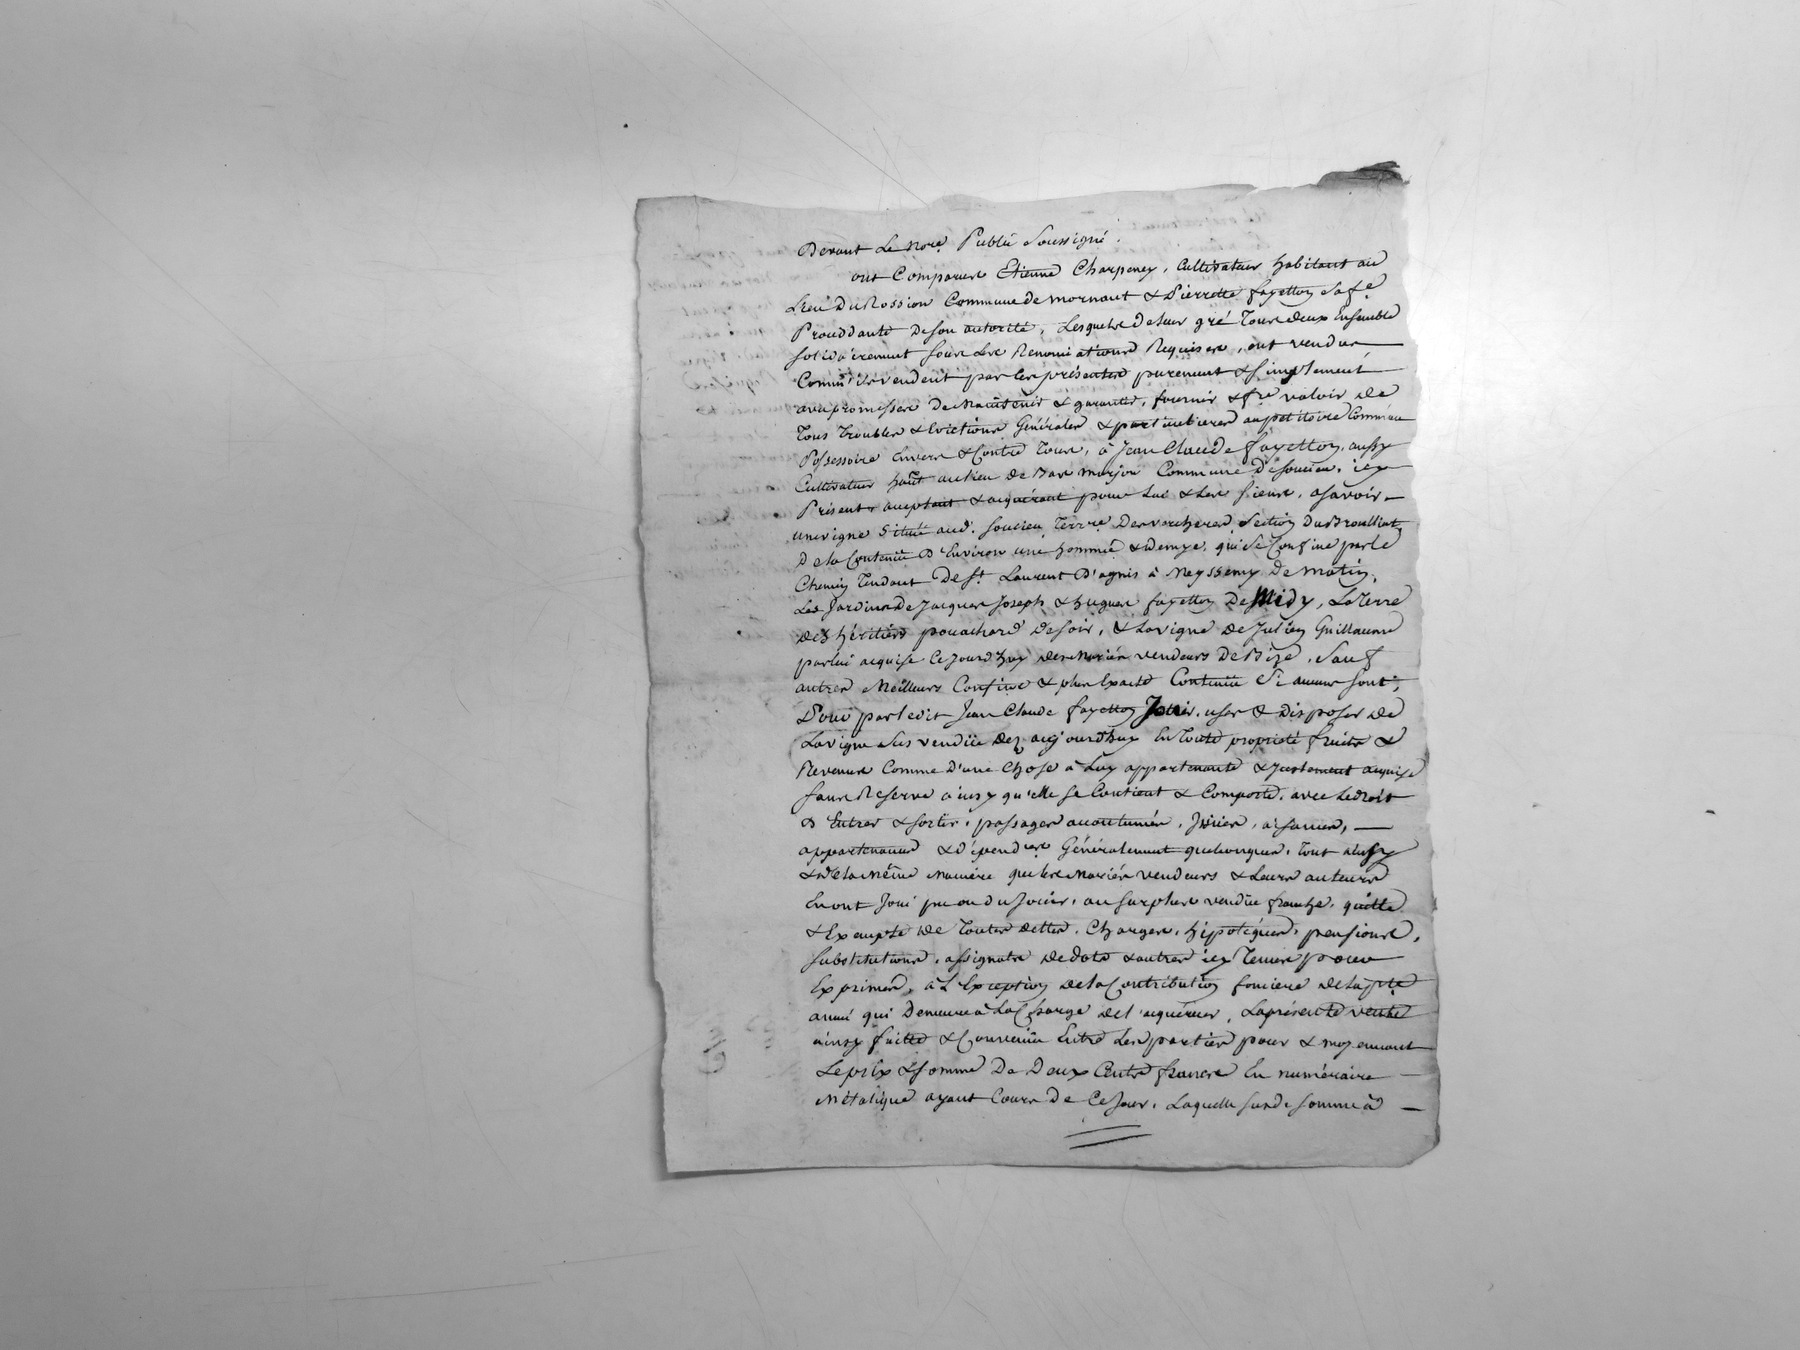 Devant Le Nore Public Soussigné.
ont Comparus Etienne Charpeney, Cultivateur habitant au
Lieu Du Rossion Commune de mornant & Pierrette fayetton Sa fe
Procédante De Son autorité, Lesquels De Leur gré Tous deux Ensemble
Solidairement Sous Les Renonciations Requises, ont vendus
Comme ils vendent par Ces présentes purement & Simplement
avec promesses De Maintenir & garantir, fournir & fre valoir de
Tous Troubles & Evictions Générales & particulieres au petitoire Comme au
Possessoire Envers & Contre Tous, à Jean Claude fayetton, aussy
Cultivateur habt au lieu de Commune De Soucieu, icy
Présent acceptant & acquérant pour Lui & Les Siens, asavoir
une vigne Située aud. Soucieu Terre Des vercheres Section Du Brouillat,
De la Contenüe D'Environ une hommée & Demye, qui Se Confine par le
Chemin Tendant De St Laurent D'agnis à Meyssemy De matin,
Les Jardins de Jacques Joseph & hugues fayetton De Midy, La Terre
des héritiers De Soir, & La vigne De Julien Guillaume
par lui acquise Ce Jourd'huy des Mariés vendeurs De Bize, Sauf
autres Meilleurs Confins & plus Exacte Contenüe Si aucuns Sont,
Pour par ledit Jean Claude fayetton Jouir, user & Disposer de
La vigne Sus vendüe dez aujourd'huy En Toute propriété fruits &
Revenus Comme D'une Chose a Luy appartenante & Justement acquise
Sans Reserve ainsy qu'elle Se Contient & Comporte, avec Le droit
D'Entrer & Sortir, passages accoutumés, aisances,
appartenances & dépendces Généralement quelconques, Tout ainsy
& de la Même Maniére que les Mariés vendeurs & Leurs auteurs
En ont Joui pu ou du Jouir, au Surplus vendüe franche, quitte
& Exempte de Toutes dettes, Charges, hipotéques, pensions,
Substitutions, assignats de dote & autres icy Tenus pour
Exprimés, à L'Exception de la Contribution fonciere de la pnte
année qui Demeure à La Charge de l'acquéreur, La présente vente
ainsy faitte & Convenüe Entre Les parties pour & moyennant
Le prix & Somme De Deux Cents francs En numéraire
Métalique ayant Cours de Ce Jour, Laquelle Susde Somme a